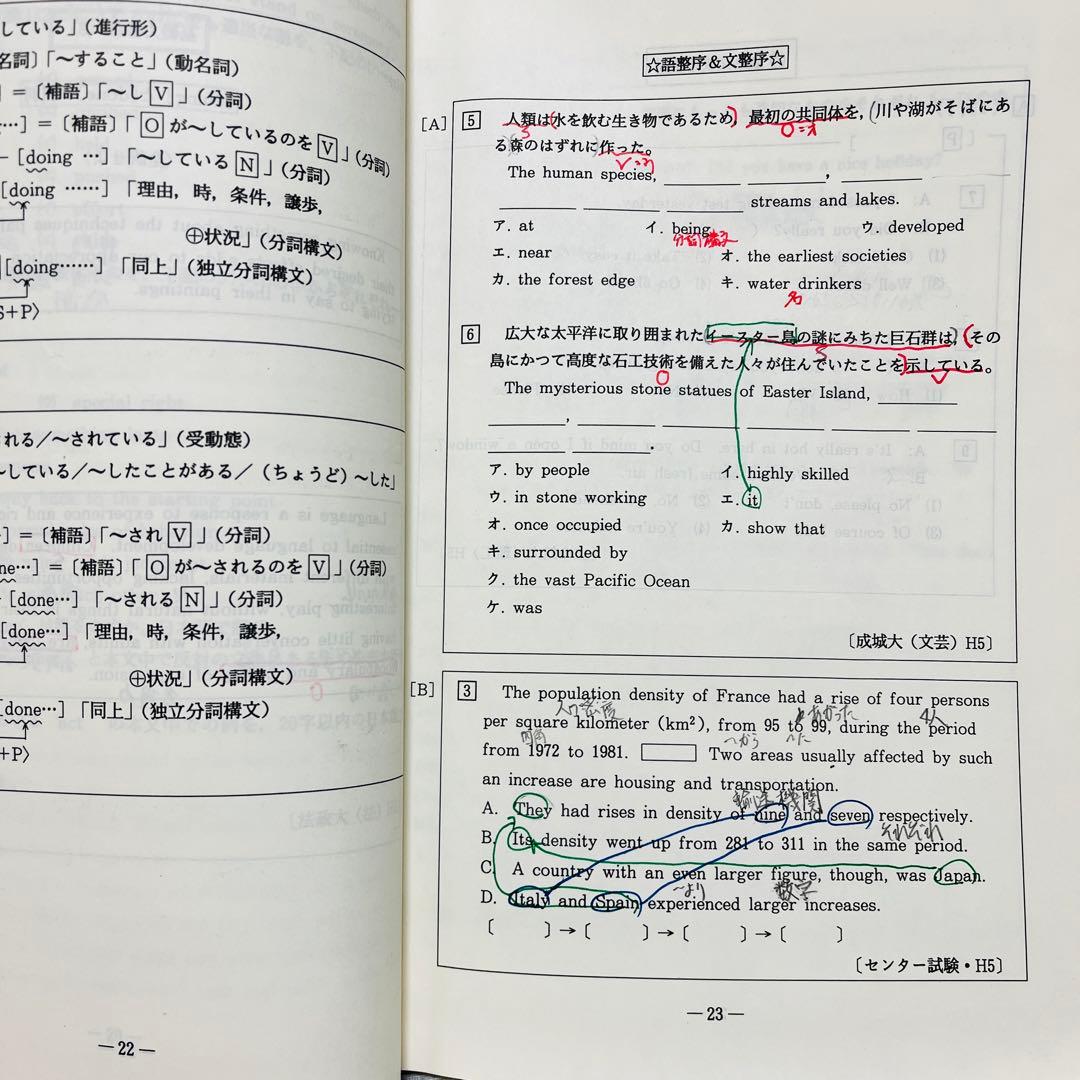 している」(進行形)
名詞]「〜すること」(動名詞)
] =〔補語〕「〜し V 」(分詞)
…] =〔補語〕「 O が〜しているのを V 」(分詞)
[doing …]「〜している N 」(分詞)
[doing ……]「理由,時,条件,譲歩,
⊕状況」(分詞構文)
[doing……]「同上」(独立分詞構文)
S+P〉
れる/〜されている」(受動態)
〜している/〜したことがある/(ちょうど)〜した」
] =〔補語〕「〜され V 」(分詞)
ne…] =〔補語〕「 O が〜されるのを V 」(分詞)
[done…]「〜される N 」(分詞)
[done…]「理由,時,条件,譲歩,
⊕状況」(分詞構文)
[done…]「同上」(独立分詞構文)
+P〉
—22—
☆語整序&文整序☆
[A] 5 人類は(水を飲む生き物であるため),最初の共同体を,(川や湖がそばにあ
S O=オ
る森のはずれに)作った。
V=ウ
The human species, ________ ________, ________
________ ________ ________ streams and lakes.
ア. at イ. being ウ. developed
分詞構文
エ. near オ. the earliest societies
カ. the forest edge キ. water drinkers
名
6 広大な太平洋に取り囲まれたイースター島の謎にみちた巨石群は,(その
S
島にかつて高度な石工技術を備えた人々が住んでいたことを)示している。
O V
The mysterious stone statues of Easter Island, ________
________, ________ ________ ________ ________
________ ________.
ア. by people イ. highly skilled
ウ. in stone working エ. it
オ. once occupied カ. show that
キ. surrounded by
ク. the vast Pacific Ocean
ケ. was
〔成城大(文芸)H5〕
[B] 3 The population density of France had a rise of four persons
人口密度 あがった 4人
per square kilometer (km²), from 95 to 99, during the period
〜から 〜へ
from 1972 to 1981. Two areas usually affected by such
an increase are housing and transportation.
輸送機関
A. They had rises in density of nine and seven respectively.
それぞれ
B. Its density went up from 281 to 311 in the same period.
C. A country with an even larger figure, though, was Japan.
〜より 数字
D. Italy and Spain experienced larger increases.
〔 〕→〔 〕→〔 〕→〔 〕
〔センター試験・H5〕
—23—